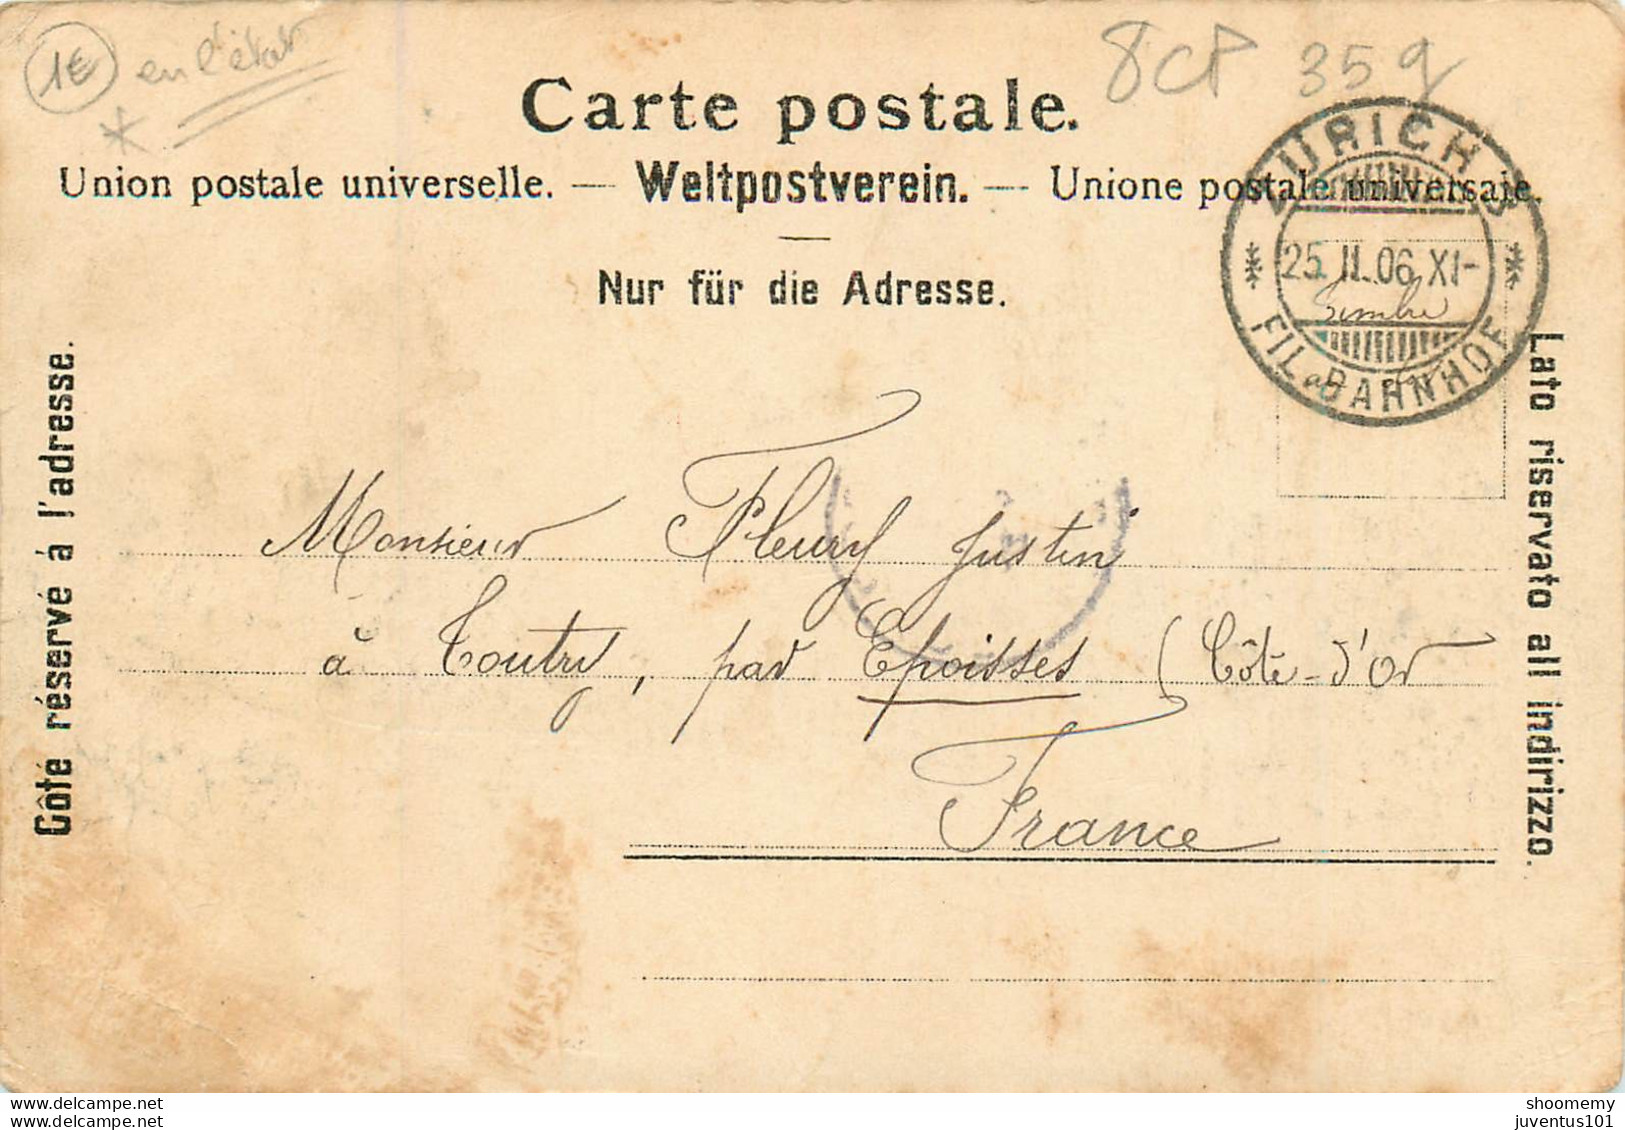 1€ en l'état
*
8CP 35g
Carte postale.
Union postale universelle. — Weltpostverein. — Unione postale universale.
Nur für die Adresse.
ZÜRICH
25.II.06.XI-
FIL. BAHNHOF
Timbre
Côté réservé à l'adresse.
Lato riservato all indirizzo.
Monsieur Fleury Justin
à Toutry, par Epoisses (Côte-d'Or
France
www.delcampe.net
www.delcampe.net
shoomemy
juventus101